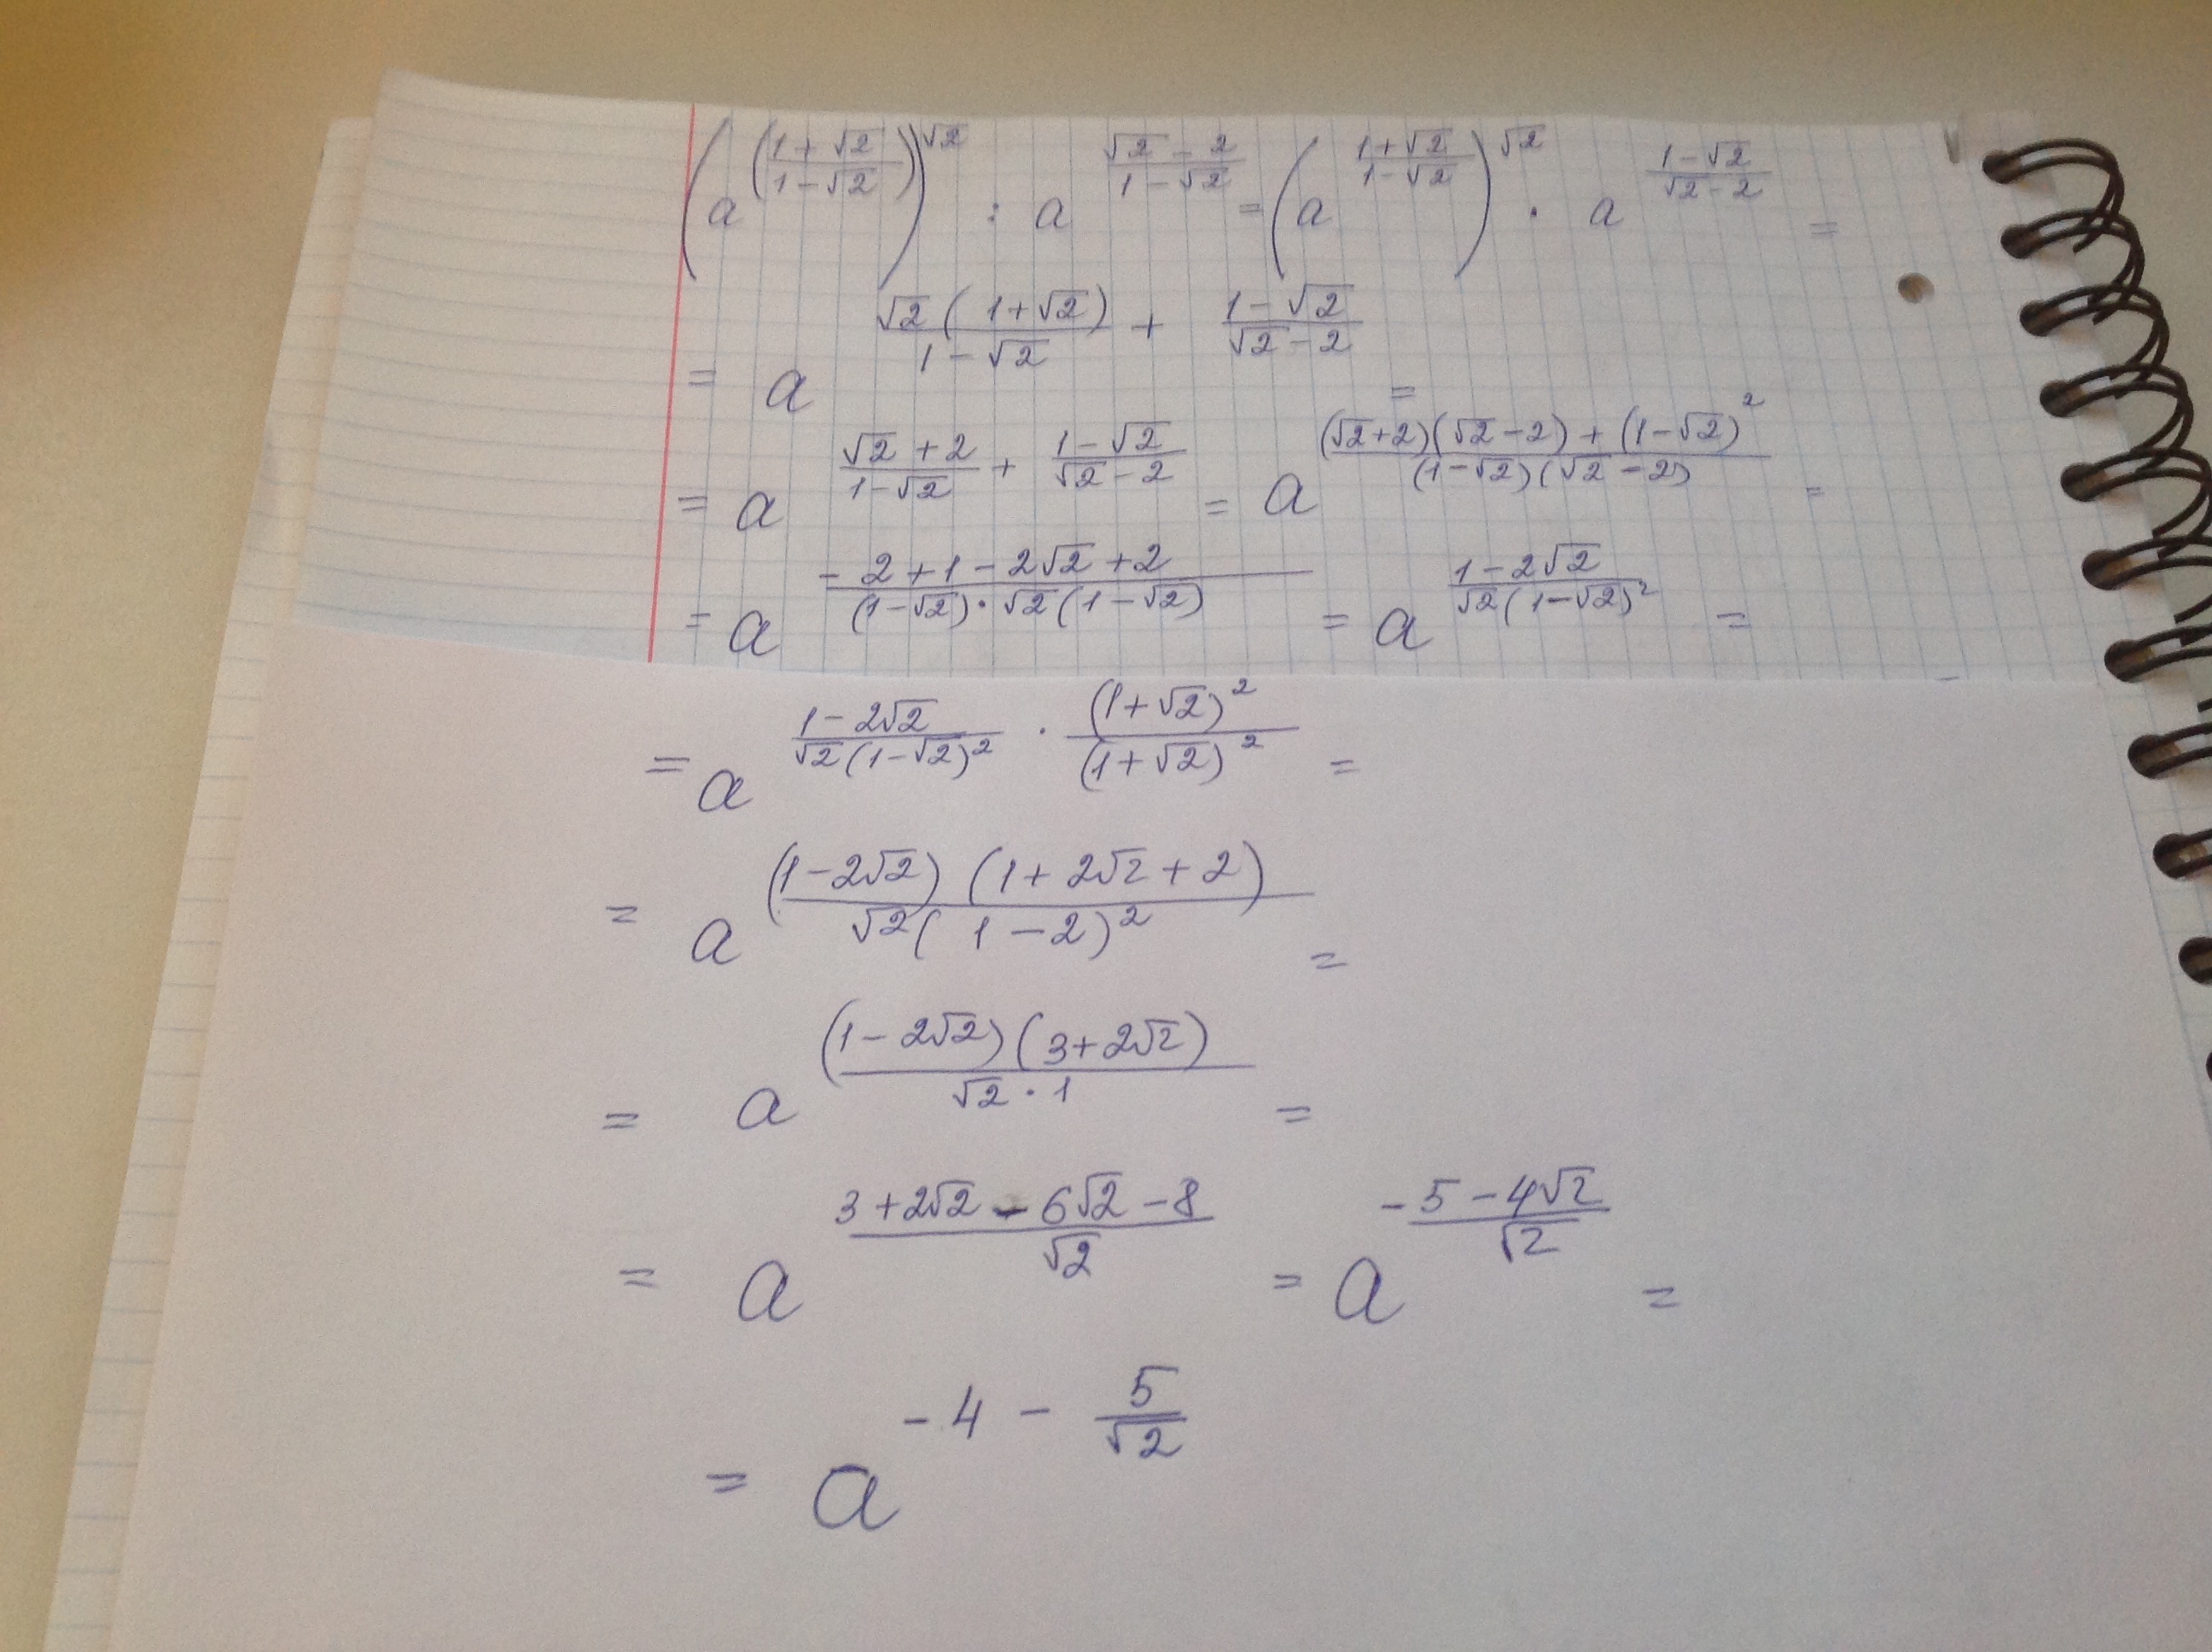 (a^((1+√2)/(1-√2)))^√2 : a^((√2-2)/(1-√2)) = (a^((1+√2)/(1-√2)))^√2 · a^((1-√2)/(√2-2)) =
= a^(√2(1+√2)/(1-√2) + (1-√2)/(√2-2)) =
= a^((√2+2)/(1-√2) + (1-√2)/(√2-2)) = a^(((√2+2)(√2-2)+(1-√2)²)/((1-√2)(√2-2))) =
= a^((-2+1-2√2+2)/((1-√2)·√2(1-√2))) = a^((1-2√2)/(√2(1-√2)²)) =
= a^((1-2√2)/(√2(1-√2)²) · (1+√2)²/(1+√2)²) =
= a^((1-2√2)(1+2√2+2)/(√2(1-2)²)) =
= a^((1-2√2)(3+2√2)/(√2·1)) =
= a^((3+2√2-6√2-8)/√2) = a^((-5-4√2)/√2) =
= a^(-4-5/√2)